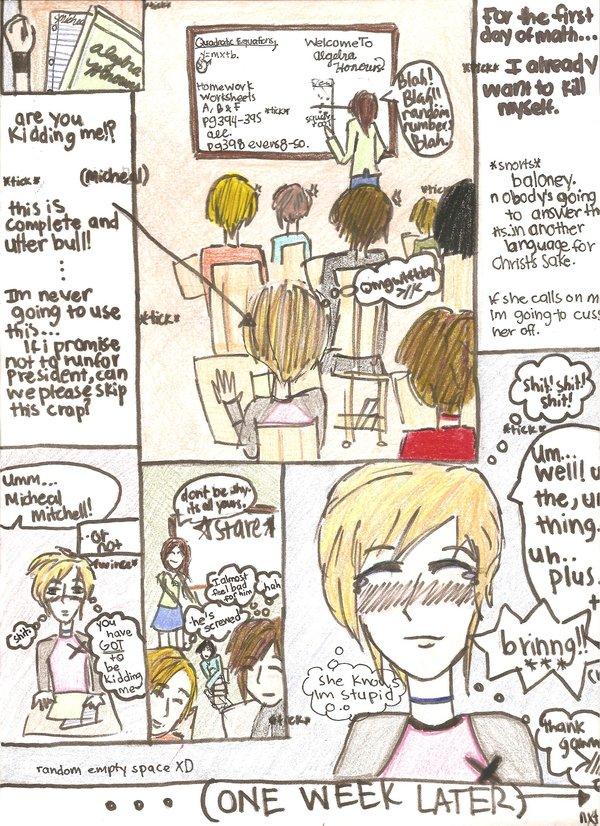 Micheal
algebra
Honours
are you
Kidding me!?
*tick*
(Micheal)
this is
complete and
utter bull!
Im never
going to use
this...
If i promise
not to run for
President, can
we please skip
this crap?
Quadratic Equations
y=mxtb.
Homework
worksheets
A, B & F
pg394-395
all.
pg398 evens8-50.
Welcome To
algebra
Honours!
*tick*
Blah!
Blah!!
random
number!
Blah.
*tick*
omgwtfbbq
>//<
*tick*
For the first
day of math...
*tick* I already
want to kill
myself.
*snorts*
baloney.
nobody's going
to answer th
its in another
language for
Christs sake.
If she calls on m
Im going to cuss
her off.
Umm...
Micheal
Mitchell!
-or
not
*twince*
shit!
you
have
GOT
to
be
kidding
me
dont be shy.
its all yours.
*stare*
I almost
feel bad
for him
hah
he's
screwed
*tick*
Shit! shit!
shit!
*tick*
Um...
well! u
the, u
thing.
uh..
plus.
brinng!!
***
she knows
Im stupid
thank
random empty space XD
... (ONE WEEK LATER)
nxt